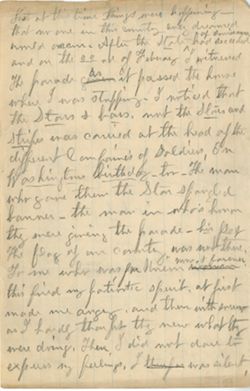 that at the time things were happening -
that no one in this country ever dreamed
would occur. After the State had seceded
and on the 22 of Febuary I witnessed
the parade as it passed the house
where I was stopping. I noticed that
the Stars & bars, not the Stars and
Stripes was carried at the head of the
different Companies of Soldiers. On
Washingtons birthday too - The man
who gave them the Star spangled
banner - the man in who's honor
they were giving the parade - his flag
The flag of our country was not there.
To me who was for Union
this fired my patriotic spirit, at first
made me angry, and then with sorrow
as I hardly thought they knew what they
were doing. Then, I did not dare to
express my feelings, I was silent